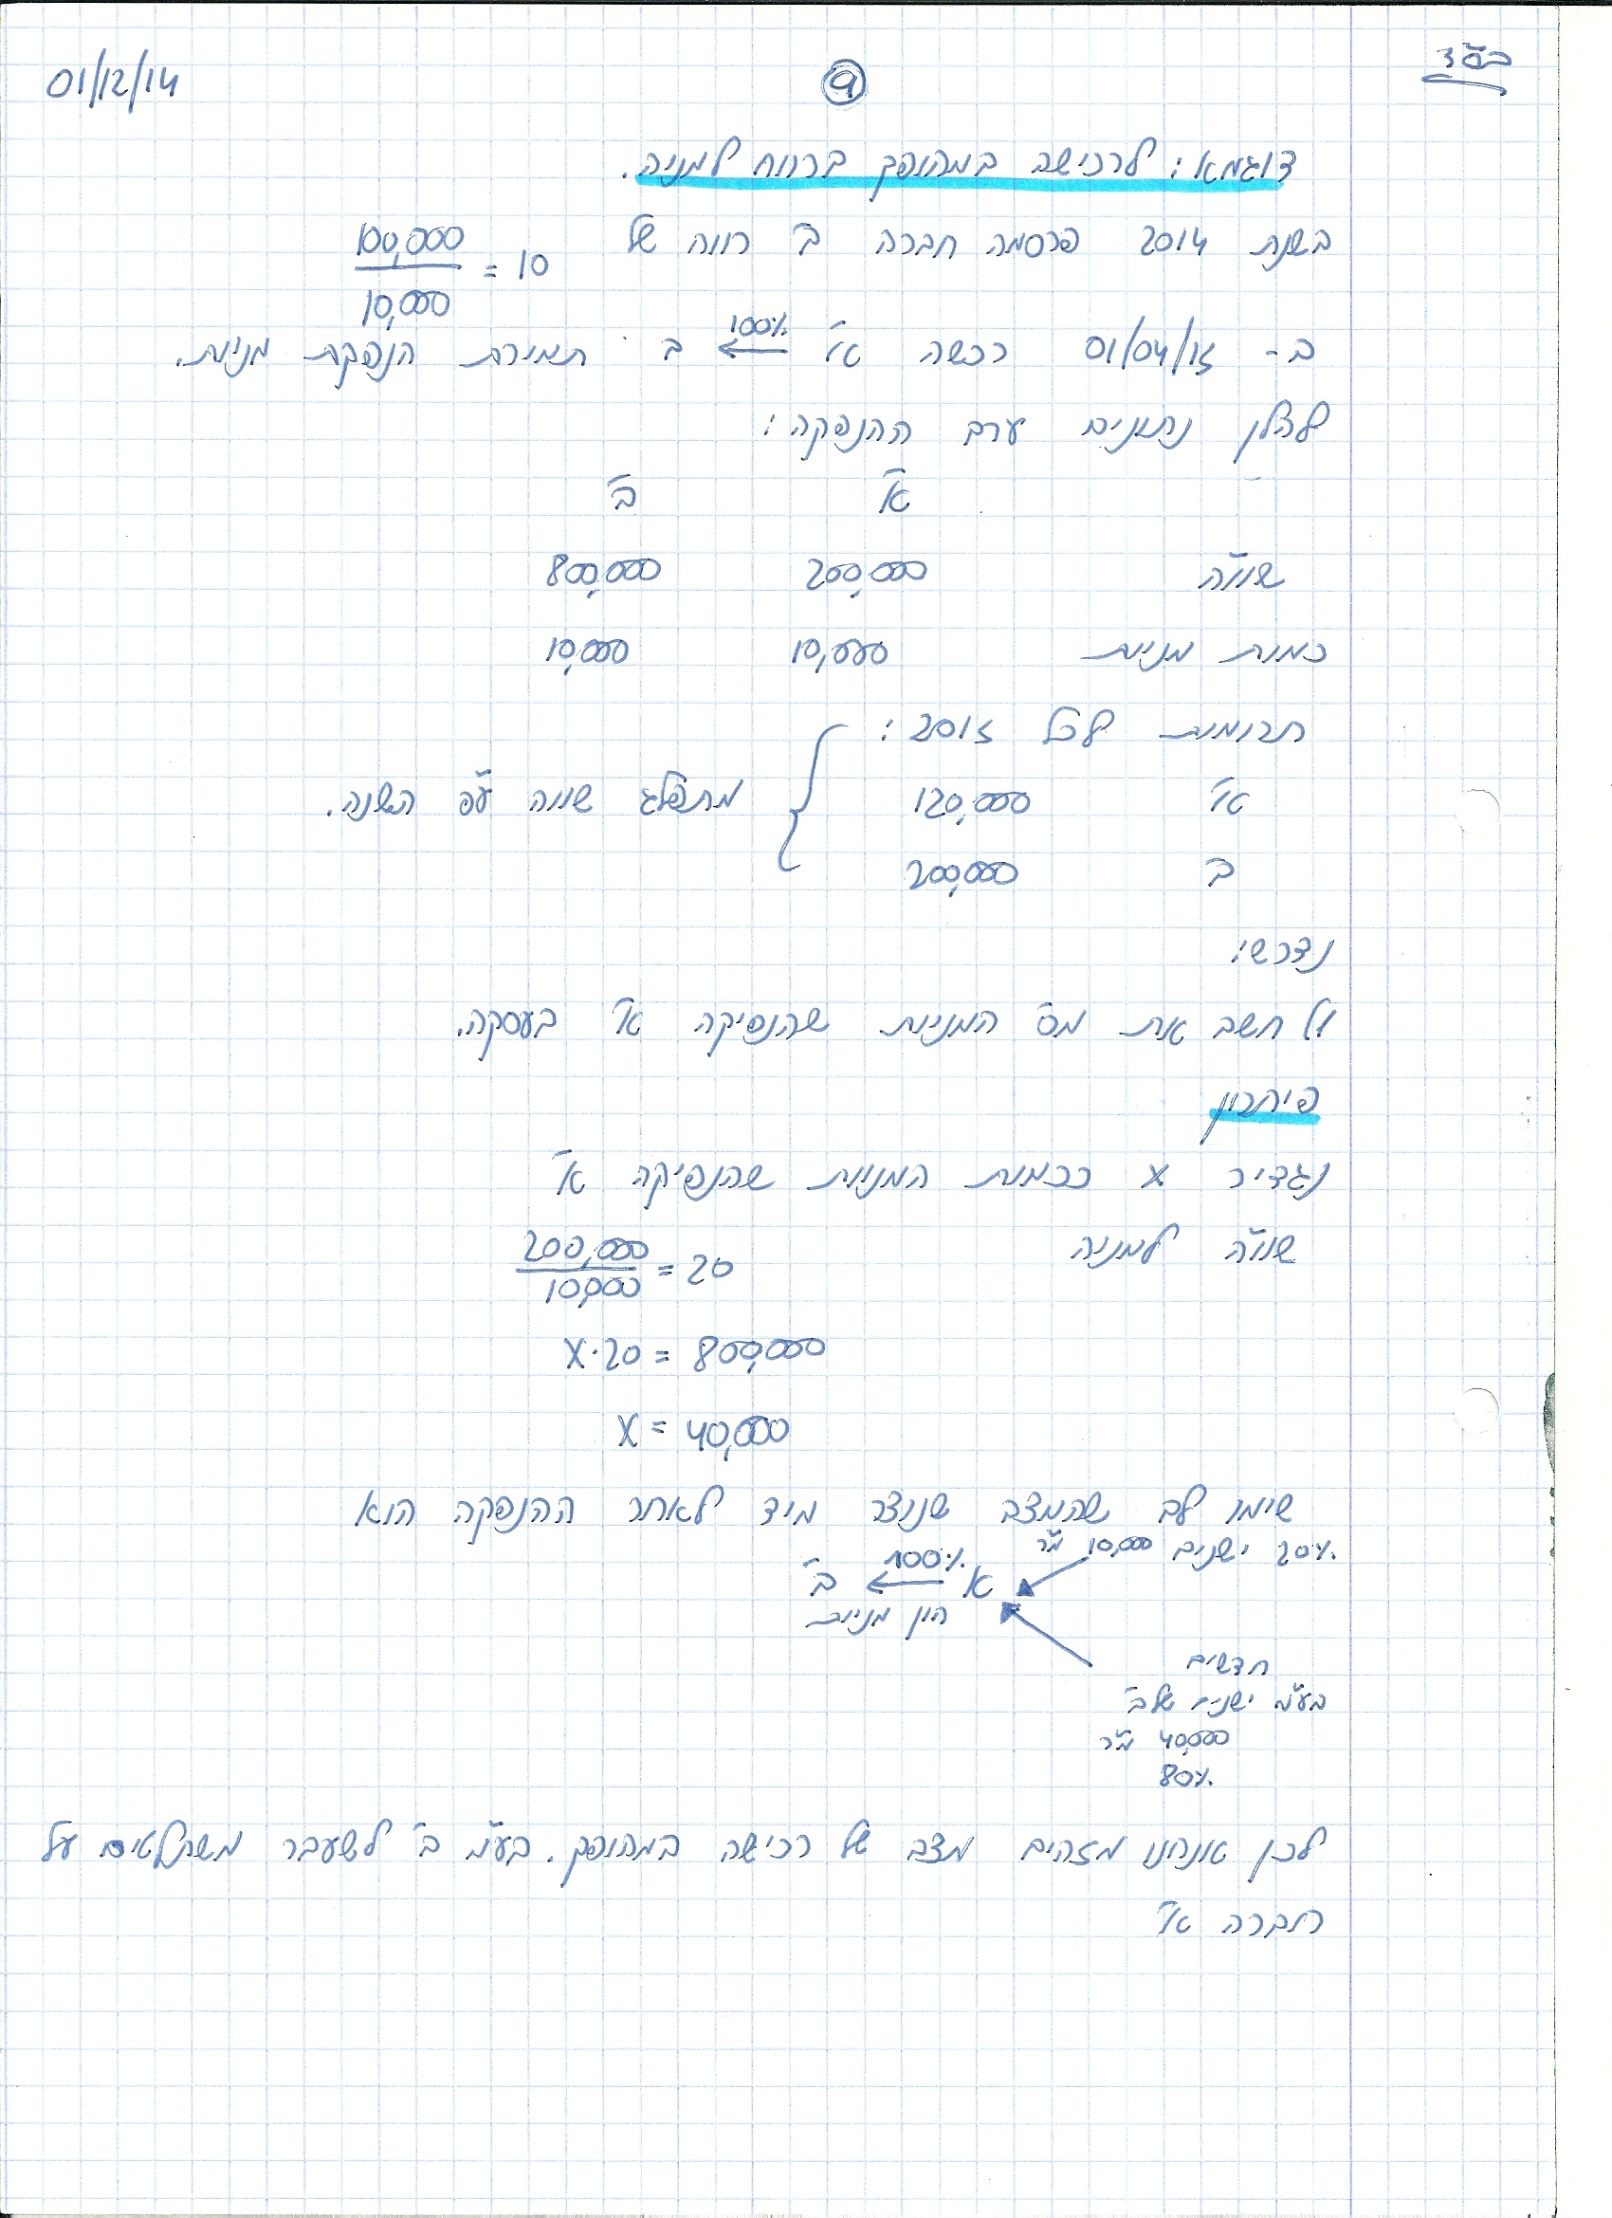 בס"ד
9
01/12/14
דוגמא: לרכישה במהופך ברווח למניה.
בשנת 2014 פרסמה חברה ב' רווח של 100,000/10,000 = 10
ב- 01/04/15 רכשה א' ← 100% ב תמורת הנפקת מניות.
להלן נתונים ערב ההנפקה:
א' ב'
שוו"ה 200,000 800,000
כמות מניות 10,000 10,000
תרומות לכל 2015:
א' 120,000 } מתפלג שווה ע"פ השנה.
ב' 200,000
נדרש:
1) חשב את מס' המניות שהנפיקה א' בעסקה.
פיתרון
נגדיר x ככמות המניות שהנפיקה א'
שוו"ה למניה 200,000/10,000 = 20
X·20 = 800,000
X = 40,000
שימו לב שהמצב שנוצר מיד לאחר ההנפקה הוא
20% ישנים 10,000 מ"ר
א ← 100% ב'
הון מניות
חדשים
בע"מ ישנים של ב'
40,000 מ"ר
80%
לכן אנחנו מזהים מצב של רכישה במהופך. בע"מ ב' לשעבר משתלטים על
חברה א'